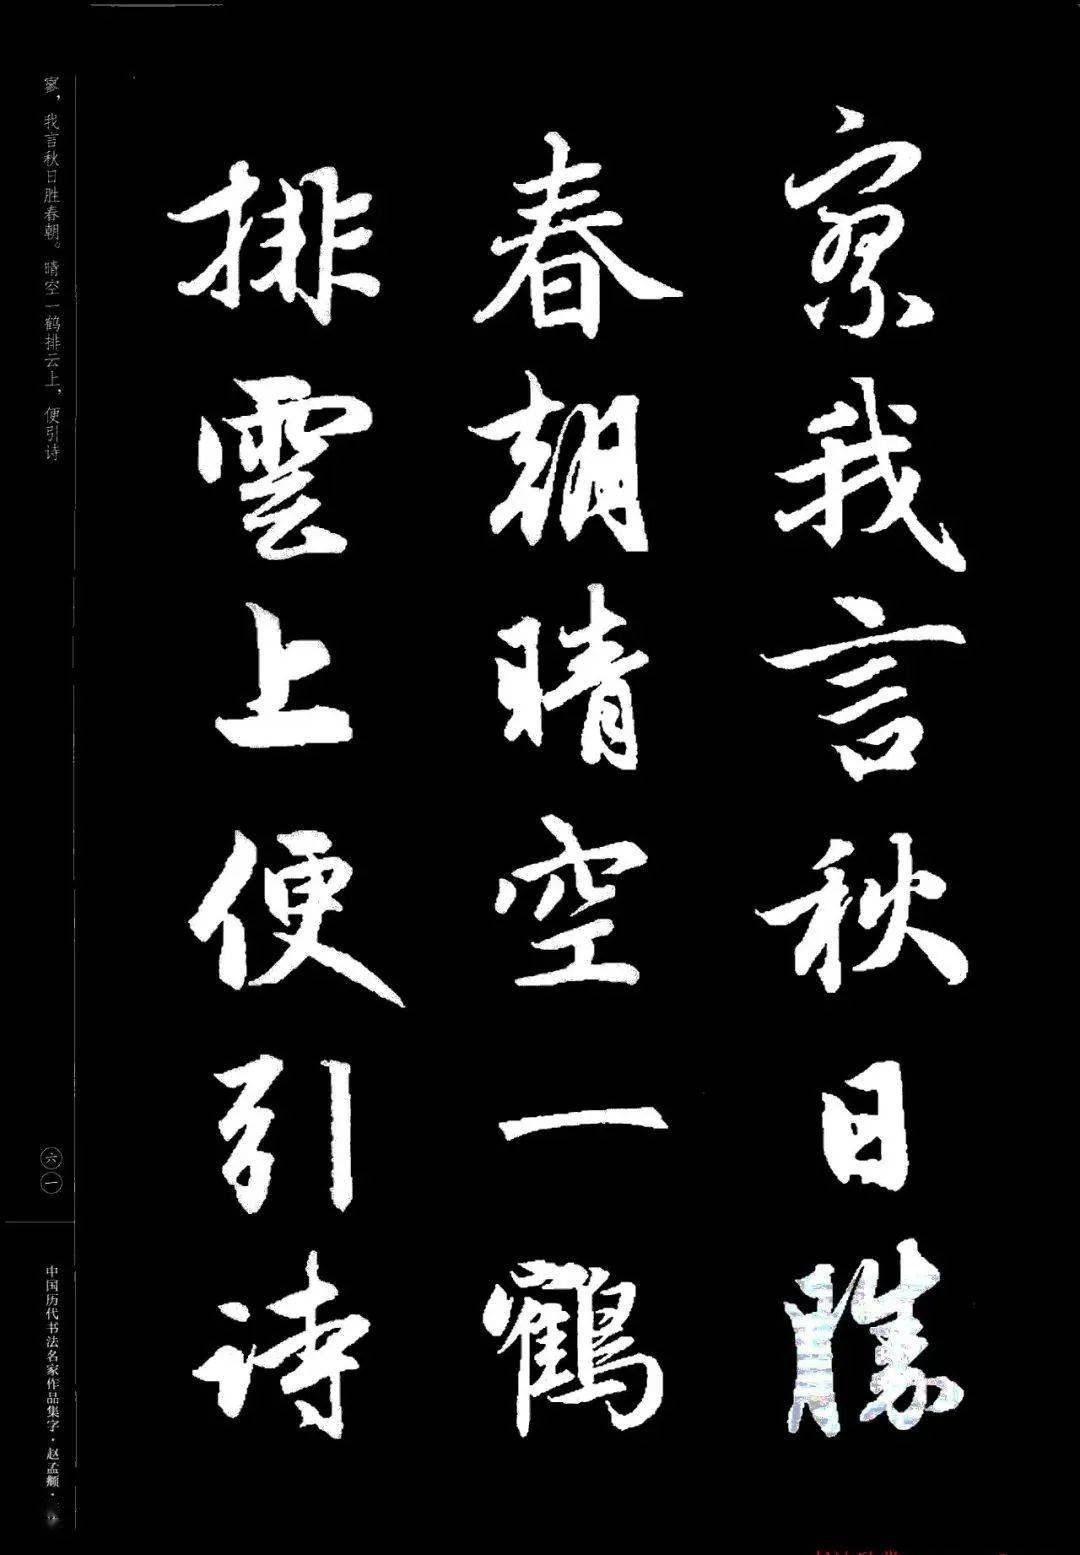 寥我言秋日勝
春朝晴空一鶴
排雲上便引诗
寥，我言秋日胜春朝。晴空一鹤排云上，便引诗
六一
中国历代书法名家作品集字·赵孟頫·